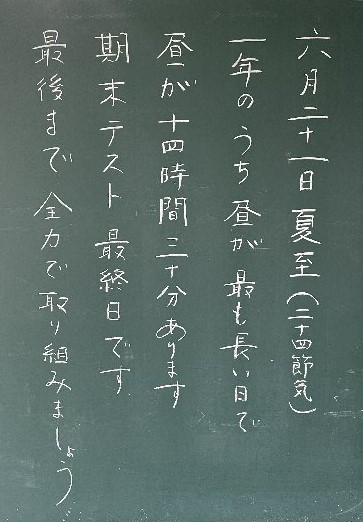 六月二十一日 夏至(二十四節気)
一年のうち 昼が 最も長い日で
昼が十四時間三十分あります
期末テスト 最終日です
最後まで 全力で取り組みましょう